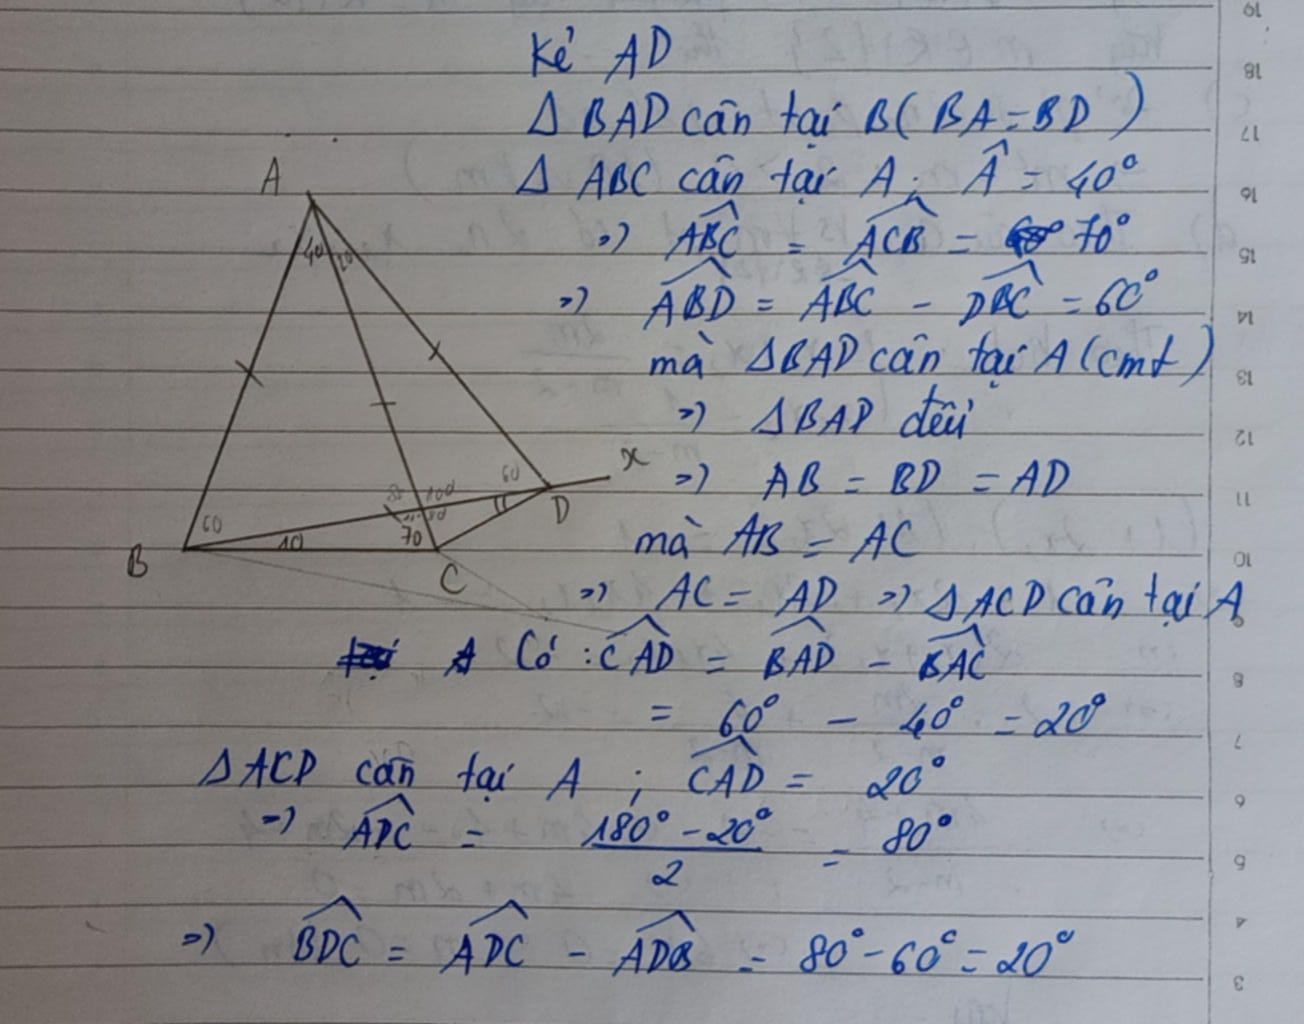 Kẻ AD
Δ BAD cân tại B( BA = BD )
Δ ABC cân tại A; Â = 40°
=) ABC = ACB = 70°
=) ABD = ABC - DBC = 60°
mà ΔBAD cân tại A (cmt)
=) ΔBAD đều
=) AB = BD = AD
mà AB = AC
=) AC = AD =) ΔACD cân tại A
Có : CAD = BAD - BAC
= 60° - 40° = 20°
ΔACD cân tại A ; CAD = 20°
=) ADC = 180° - 20° / 2 = 80°
=) BDC = ADC - ADB = 80° - 60° = 20°
A
40 20
x
60
D
80 100
60
10
70
B
C
19
18
17
16
15
14
13
12
11
10
9
8
7
6
5
4
3